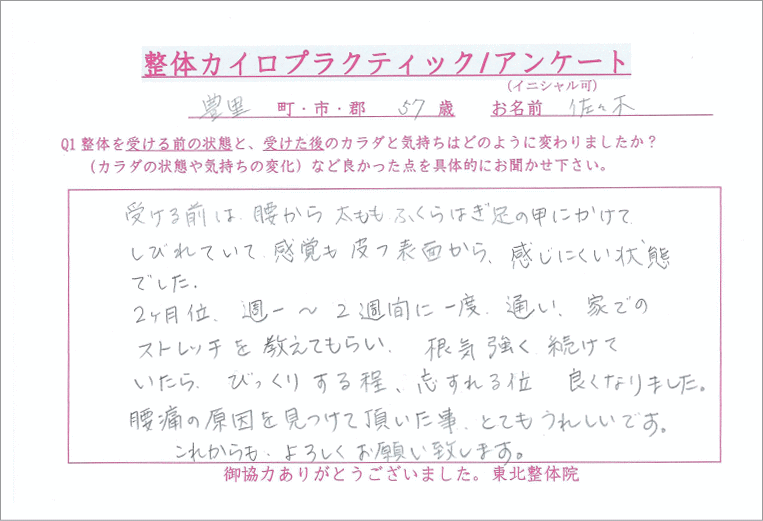 整体カイロプラクティック/アンケート
(イニシャル可)
豊里 町・市・郡 57 歳 お名前 佐々木
Q1 整体を受ける前の状態と、受けた後のカラダと気持ちはどのように変わりましたか？
（カラダの状態や気持ちの変化）など良かった点を具体的にお聞かせ下さい。
受ける前は、腰から 太もも ふくらはぎ 足の甲にかけて
しびれていて 感覚も 皮フ表面から、感じにくい状態
でした。
2ヶ月位、週一～2週間に一度、通い、家での
ストレッチを 教えてもらい、根気強く 続けて
いたら、びっくりする程、忘すれる位 良くなりました。
腰痛の原因を見つけて頂いた事、とてもうれしいです。
これからも、よろしくお願い致します。
御協力ありがとうございました。東北整体院